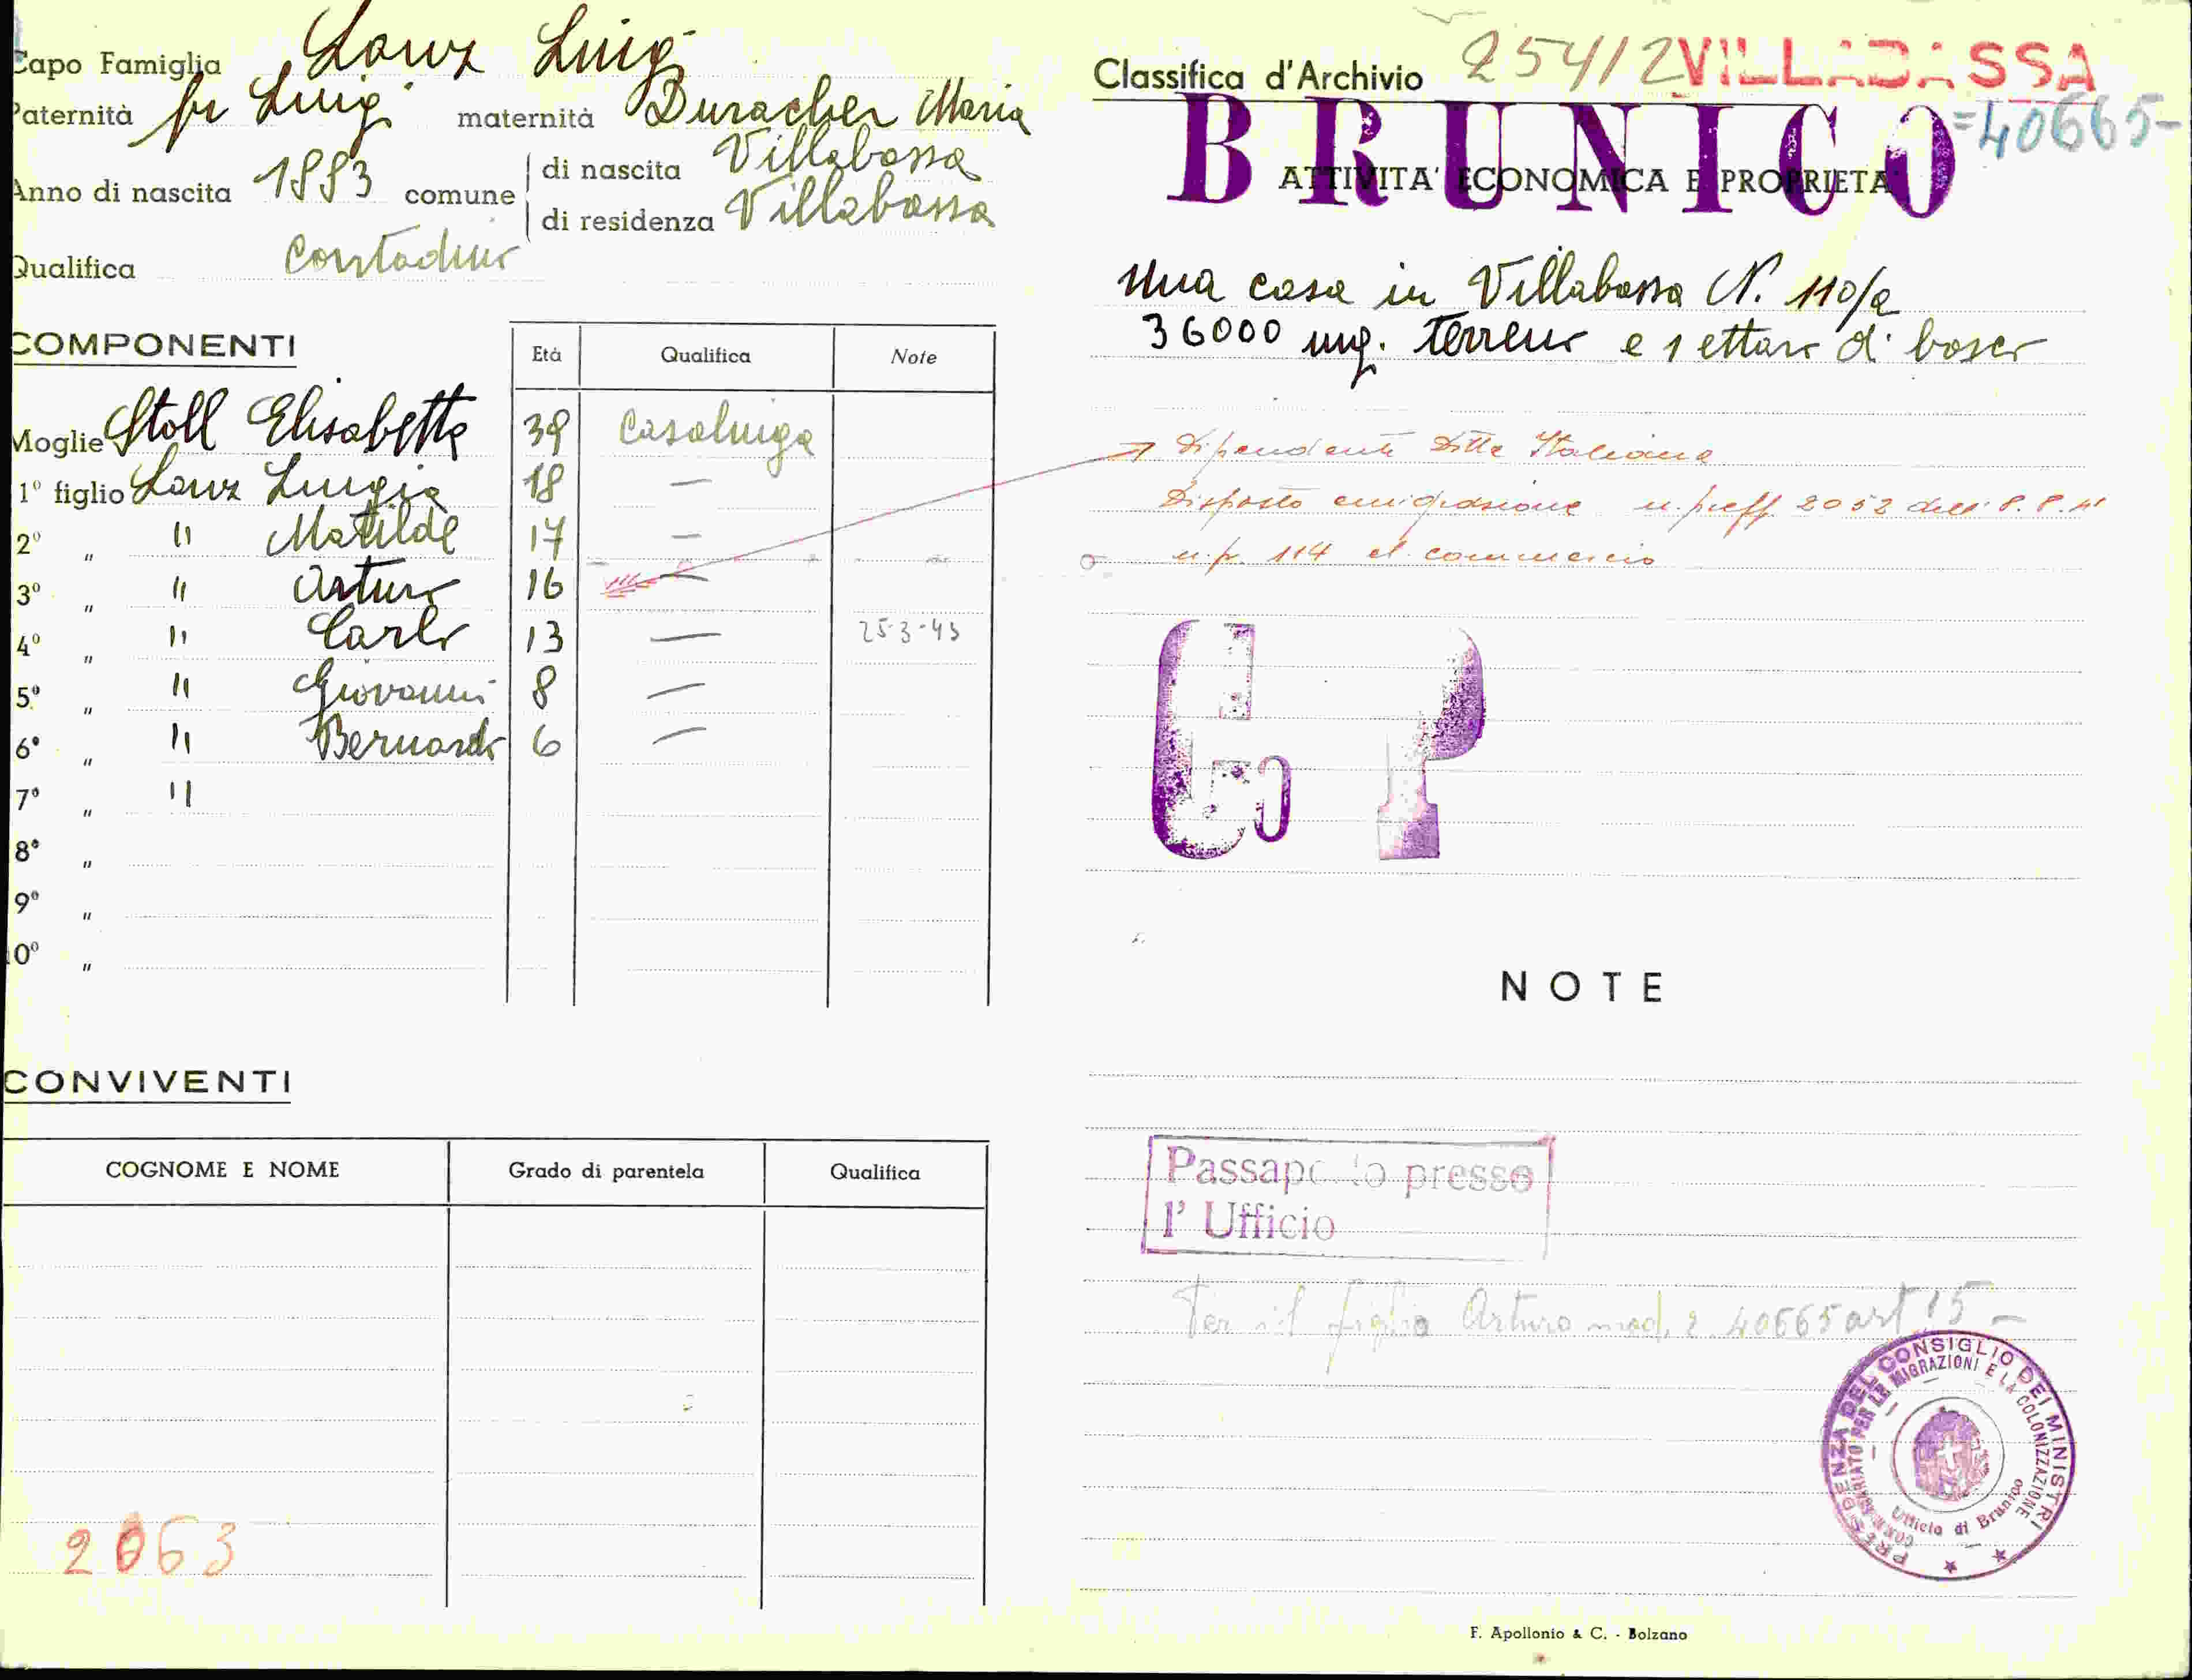 Capo Famiglia Lanz Luigi
Paternità fu Luigi maternità Duracher Maria
Anno di nascita 1883 comune di nascita Villabassa
di residenza Villabassa
Qualifica Contadino
COMPONENTI
Età Qualifica Note
Moglie Stoll Elisabetta 39 Casalinga
1º figlio Lanz Luigia 18 —
2º " " Matilde 17 —
3º " " Arturo 16 —
4º " " Carlo 13 — 25-3-43
5º " " Giovanni 8 —
6º " " Bernardo 6 —
7º " "
8º "
9º "
10º "
CONVIVENTI
COGNOME E NOME Grado di parentela Qualifica
2063
Classifica d'Archivio 25412 VILLABASSA
BRUNICO =40665-
ATTIVITA' ECONOMICA E PROPRIETA'
Una casa in Villabassa N. 110/a
36000 mq. terreno e 1 ettaro di bosco
Dipendente Ditta Italiana
Disposto emigrazione n. preff. 2052 dell' 8.8.41
n.p. 114 al commercio
G P
NOTE
Passaporto presso
l' Ufficio
Per il figlio Arturo mod. 2. 40665 art 15 -
PRESIDENZA DEL CONSIGLIO DEI MINISTRI
COMMISSARIATO PER LE MIGRAZIONI E LA COLONIZZAZIONE
Ufficio di Brunico
F. Apollonio & C. - Bolzano